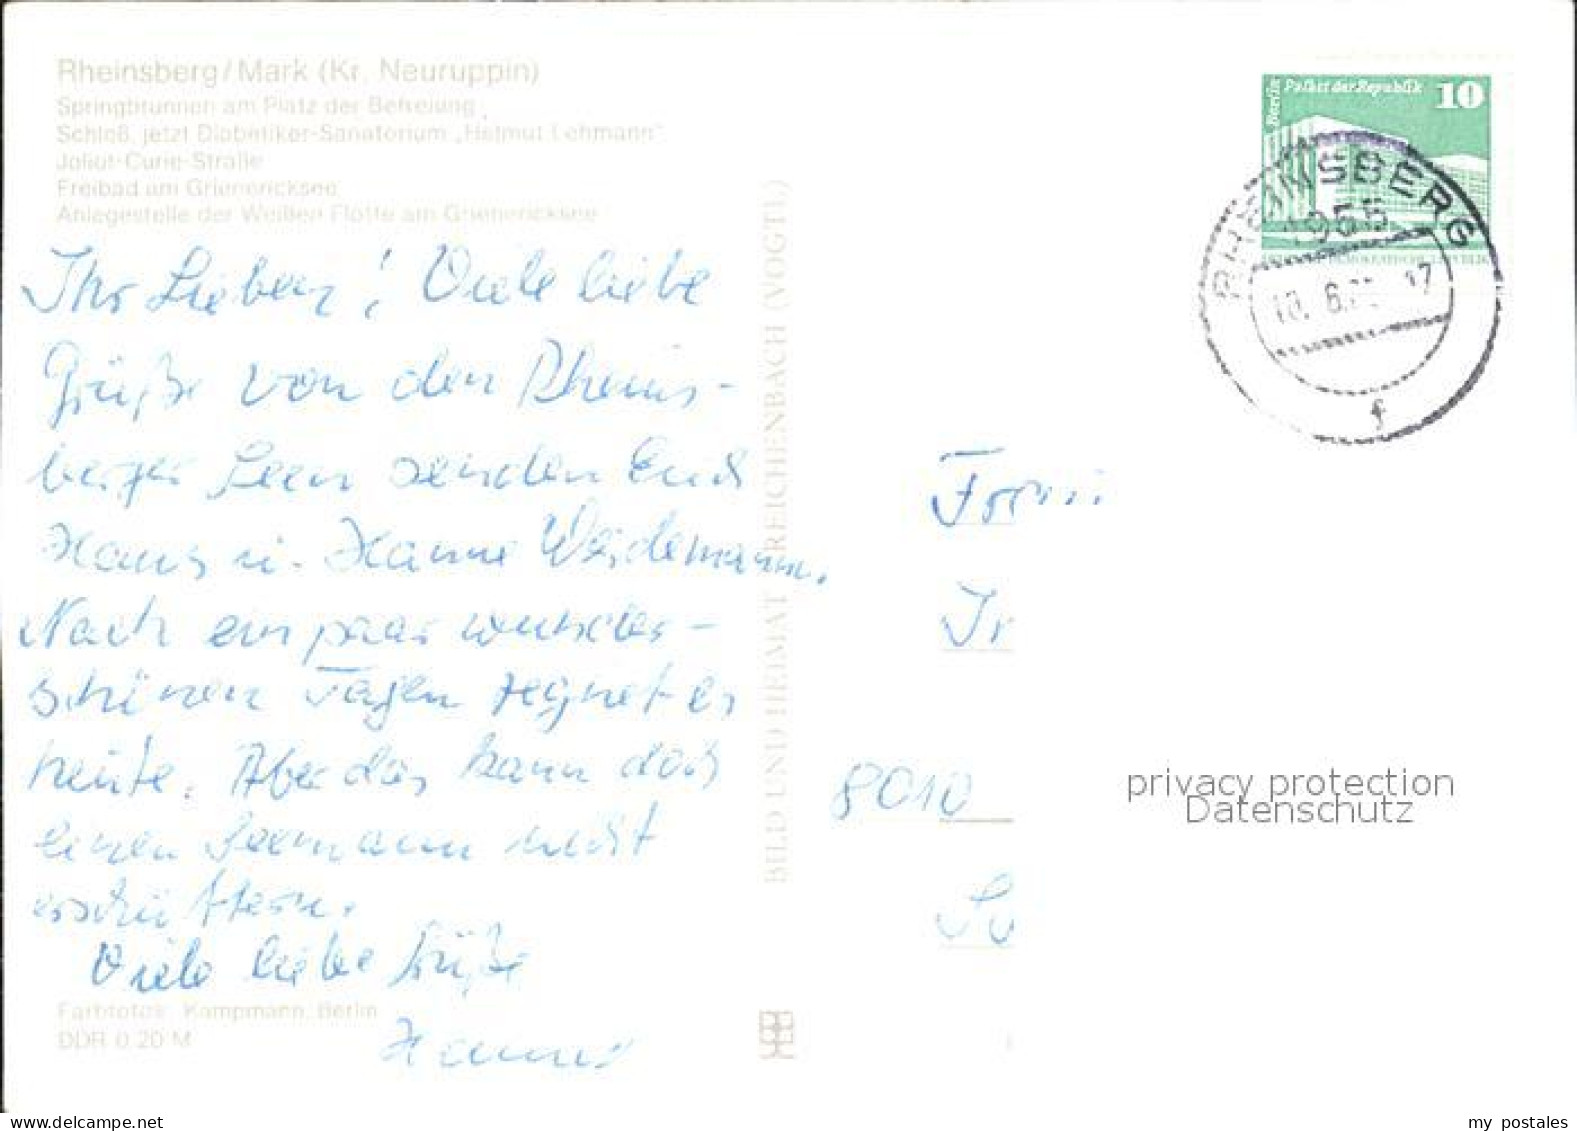 Rheinsberg/Mark (Kr. Neuruppin)
Springbrunnen am Platz der Befreiung
Schloß, jetzt Diabetiker-Sanatorium „Helmut Lehmann"
Joliot-Curie-Straße
Freibad am Grienericksee
Anlegestelle der Weißen Flotte am Grienericksee
Ihr Lieben! Viele liebe
Grüße von den Rheins-
berger Seen senden Euch
Hans u. Hanne Weidemann.
Nach ein paar wunder-
schönen Tagen regnet es
heute. Aber das kann doch
einen Seemann nicht
erschüttern.
Viele liebe Grüße
Hanne
Farbfotos: Kampmann, Berlin
DDR 0,20 M
BILD UND HEIMAT REICHENBACH (VOGTL)
Berlin Palast der Republik 10
RHEINSBERG
1955
f
8010
privacy protection
Datenschutz
www.delcampe.net
my_postales